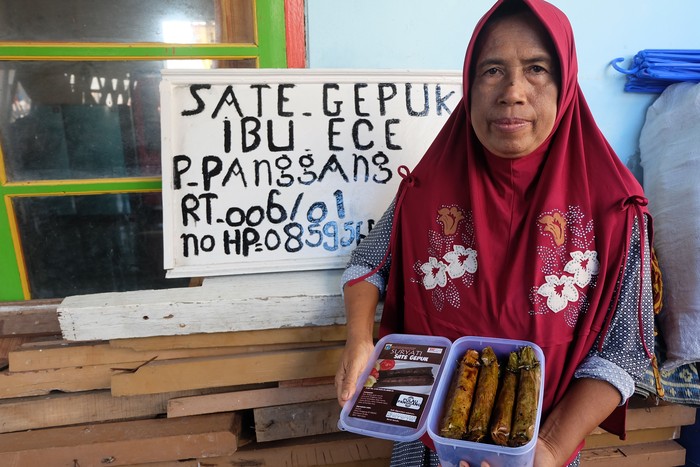 SATE GEPUK
IBU ECE
P-PANggANg
RT-006/01
no HP=085954
SURYATI
SATE GEPUK